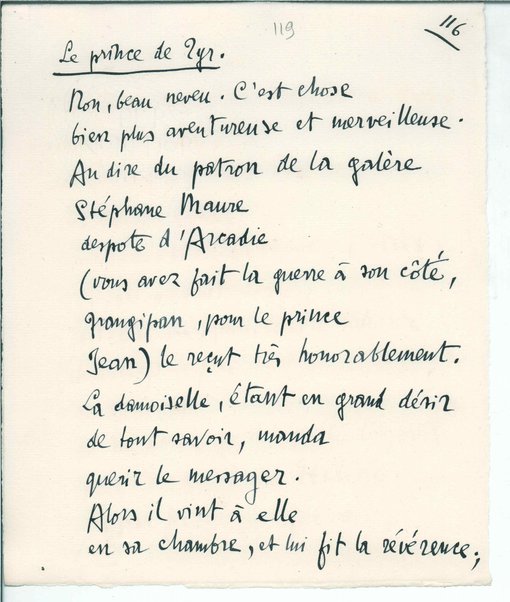 119
116
Le prince de Tyr.
Non, beau neveu. C'est chose
bien plus aventureuse et merveilleuse.
Au dire du patron de la galère
Stéphane Maure
despote d'Arcadie
(vous avez fait la guerre à son côté,
frangipan, pour le prince
Jean) le reçut très honorablement.
La damoiselle, étant en grand désir
de tout savoir, manda
querir le messager.
Alors il vint à elle
en sa chambre, et lui fit la révérence;